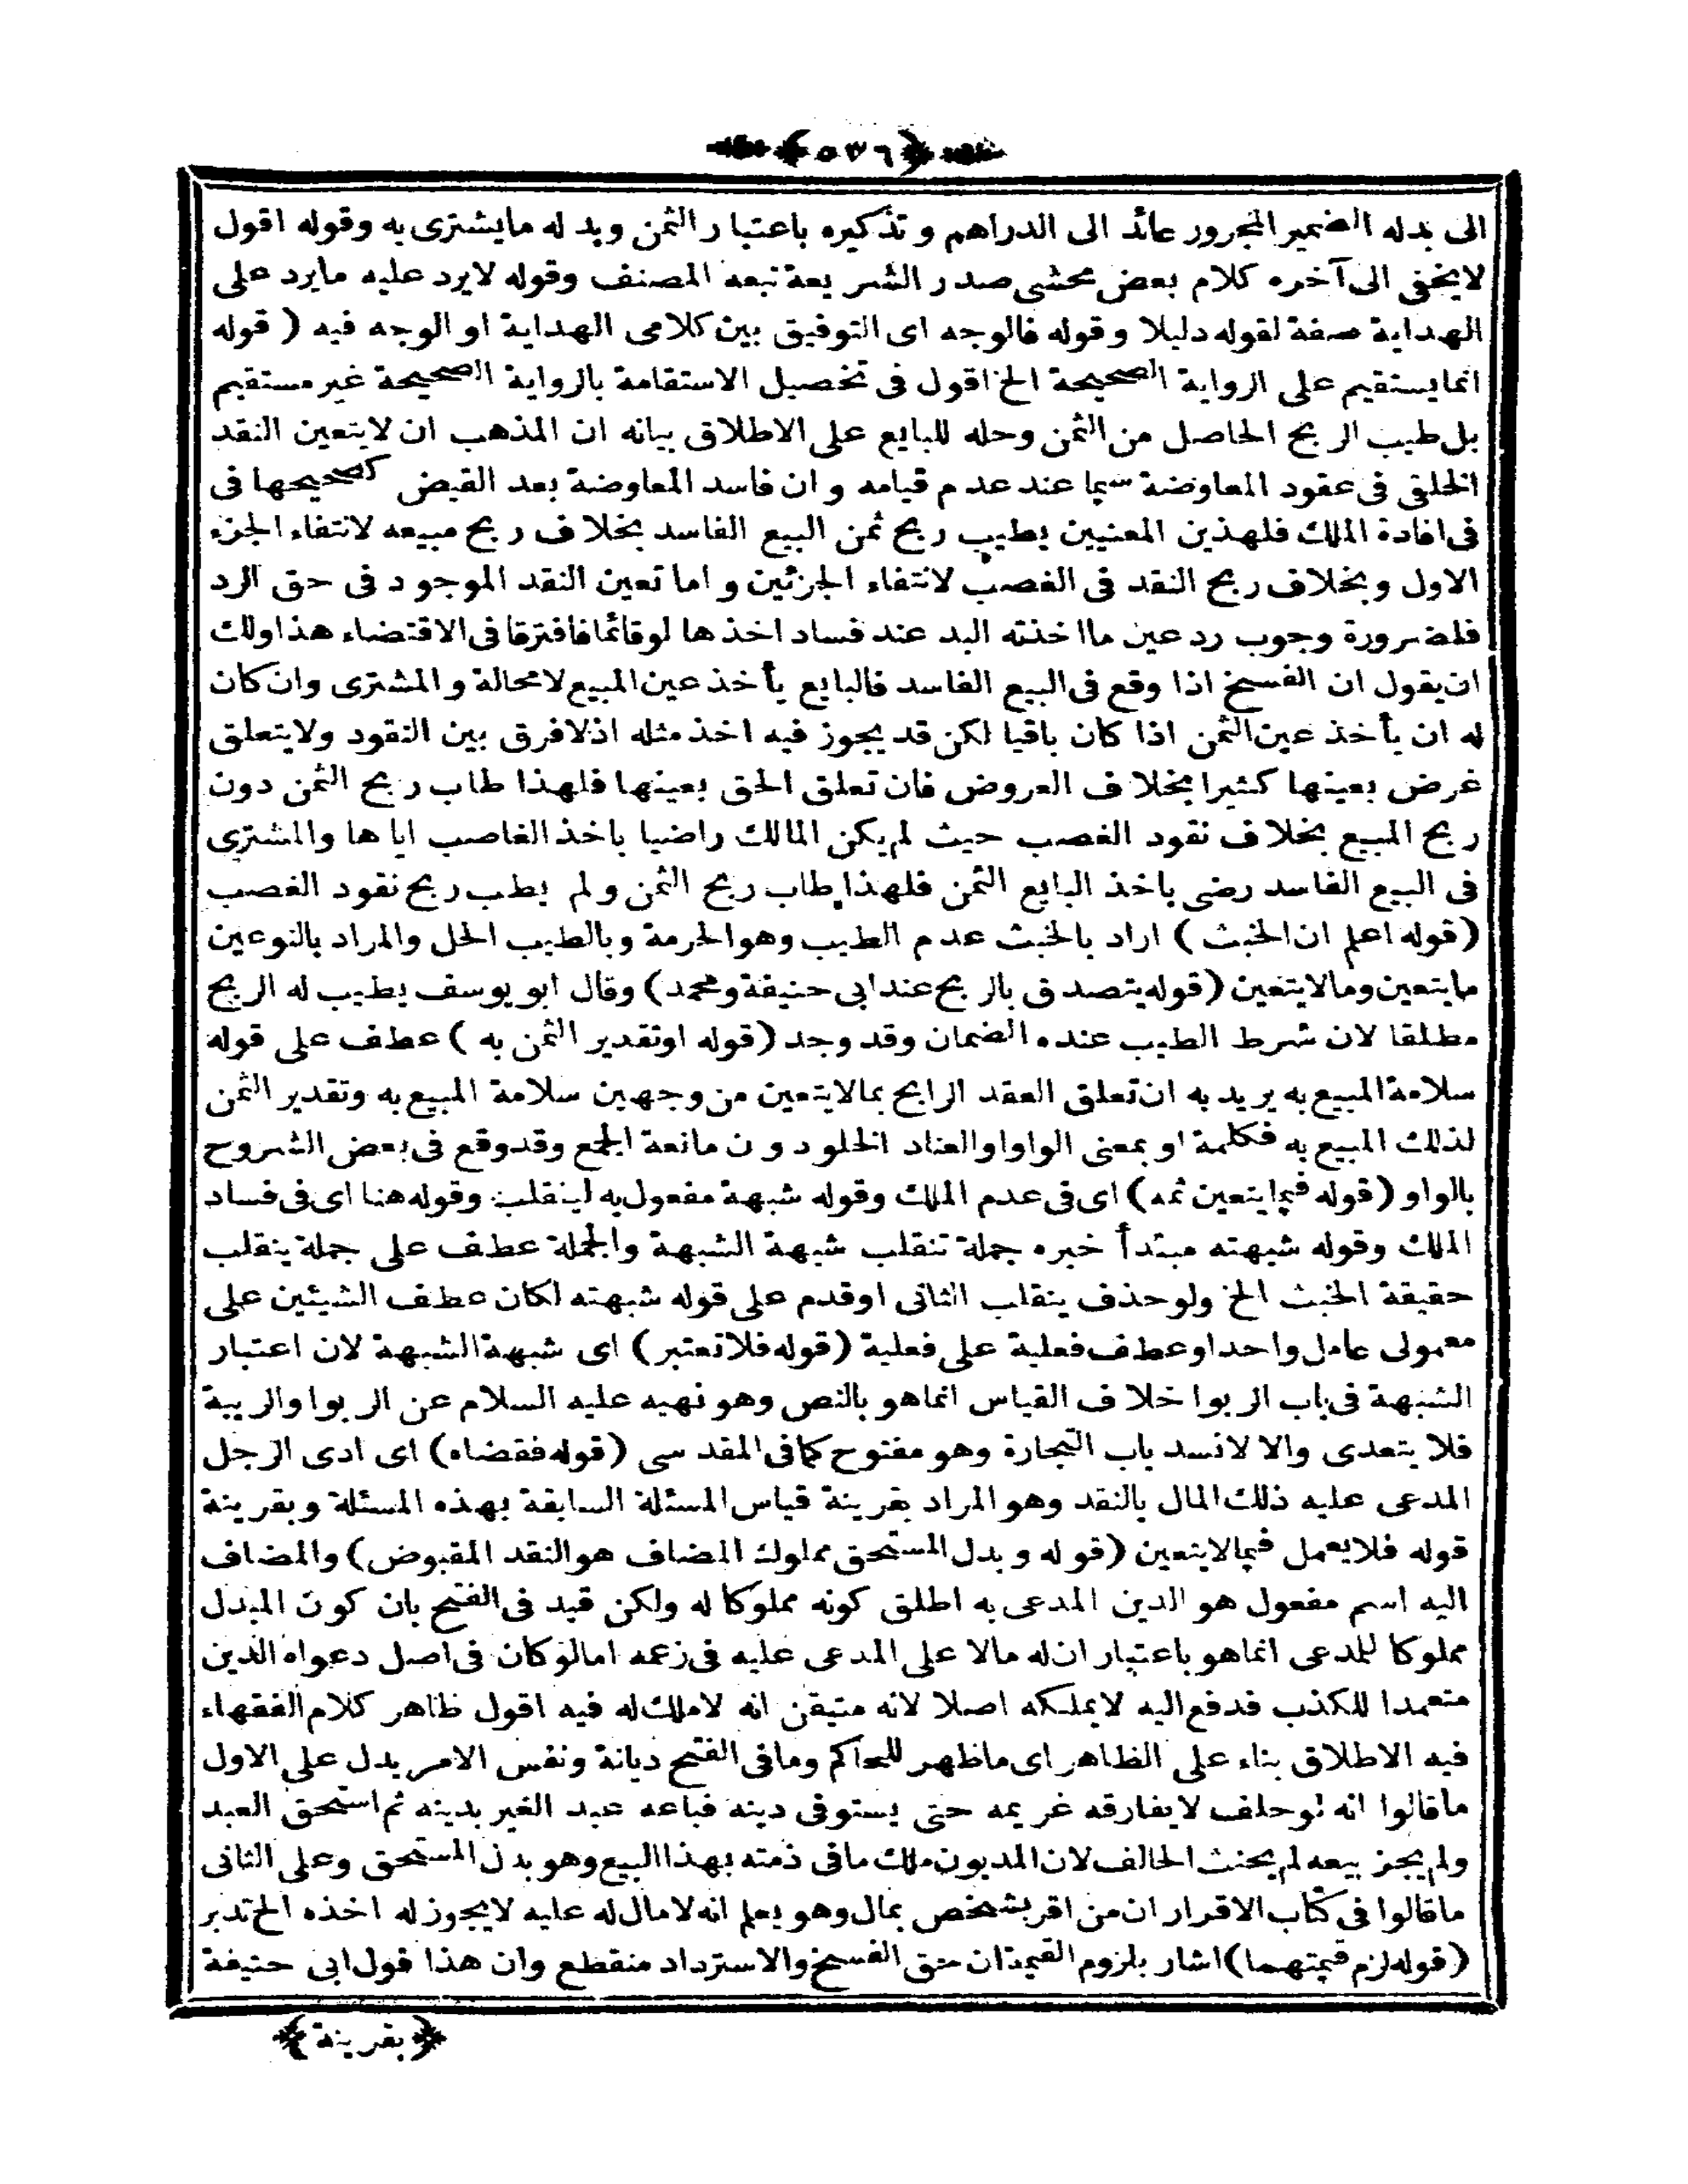 ﴿٥٣٦﴾
الى بدله الضمير المجرور عائد الى الدراهم و تذكيره باعتبار الثمن وبدله مايشترى به وقوله اقول
لايخفى الى آخره كلام بعض محشى صدر الشريعة تبعه المصنف وقوله لايرد عليه مايرد على
الهداية صفة لقوله دليلا وقوله فالوجه اى التوفيق بين كلامى الهداية او الوجه فيه ( قوله
انما يستقيم على الرواية الصحيحة الخ اقول فى تخصيل الاستقامة بالرواية الصحيحة غير مستقيم
بل طيب الربح الحاصل من الثمن وحله للبايع على الاطلاق بيانه ان المذهب ان لايتعين النقد
الخلقى فى عقود المعاوضة سيما عند عدم قيامه وان فاسد المعاوضة بعد القبض كصحيحها فى
فى افادة الملك فلهذين المعنيين يطيب ربح ثمن البيع الفاسد بخلاف ربح مبيعه لانتفاء الجزء
الاول وبخلاف ربح النقد فى الغصب لانتفاء الجزئين واما تعين النقد الموجود فى حق الرد
فلضرورة وجوب رد عين مااخذته اليد عند فساد اخذها لوقائما فافترقا فى الاقتضاء هذا ولك
ان يقول ان الفسخ اذا وقع فى البيع الفاسد فالبايع يأخذ عين المبيع لامحالة والمشترى وان كان
له ان يأخذ عين الثمن اذا كان باقيا لكن قد يجوز فيه اخذ مثله اذلافرق بين النقود ولايتعلق
غرض بعينها كثيرا بخلاف العروض فان تعلق الحق بعينها فلهذا طاب ربح الثمن دون
ربح المبيع بخلاف نقود الغصب حيث لم يكن المالك راضيا باخذ الغاصب اياها والمشترى
فى البيع الفاسد رضى باخذ البايع الثمن فلهذا طاب ربح الثمن ولم يطب ربح نقود الغصب
(قوله اعلم ان الخبث ) اراد بالخبث عدم الطيب وهو الحرمة وبالطيب الحل والمراد بالنوعين
مايتعين ومالايتعين (قوله يتصدق بالربح عند ابى حنيفة ومحمد) وقال ابو يوسف يطيب له الربح
مطلقا لان شرط الطيب عنده الضمان وقد وجد (قوله اوتقدير الثمن به ) عطف على قوله
سلامة المبيع به يريد به ان تعلق العقد الرابح بمالايتعين من وجهين سلامة المبيع به وتقدير الثمن
لذلك المبيع به فكلمة او بمعنى الواو او العناد الخلو دون مانعة الجمع وقد وقع فى بعض الشروح
بالواو (قوله فيما يتعين ثمه) اى فى عدم الملك وقوله شبهة مفعول به لينقلب وقوله هنا اى فى فساد
الملك وقوله شبهته مبتدأ خبره جملة تنقلب شبهة الشبهة والجملة عطف على جملة ينقلب
حقيقة الخبث الخ ولو حذف ينقلب الثانى او قدم على قوله شبهته لكان عطف الشيئين على
معمولى عامل واحد او عطف فعلية على فعلية (قوله فلاتعتبر) اى شبهة الشبهة لان اعتبار
الشبهة فى باب الربوا خلاف القياس انما هو بالنص وهو نهيه عليه السلام عن الربوا والريبة
فلا يتعدى والا لانسد باب التجارة وهو مفتوح كمافى المقدسى (قوله فقضاه) اى ادى الرجل
المدعى عليه ذلك المال بالنقد وهو المراد بقرينة قياس المسئلة السابقة بهذه المسئلة وبقرينة
قوله فلايعمل فيمالايتعين (قوله وبدل المستحق مملوك المضاف هو النقد المقبوض) والمضاف
اليه اسم مفعول هو الدين المدعى به اطلق كونه مملوكا له ولكن قيد فى الفتح بان كون المبدل
مملوكا للمدعى انما هو باعتبار ان له مالا على المدعى عليه فى زعمه اما لو كان فى اصل دعواه الدين
متعمدا للكذب فدفع اليه لايملكه اصلا لانه متيقن انه لاملك له فيه اقول ظاهر كلام الفقهاء
فيه الاطلاق بناء على الظاهر اى ماظهر للحاكم ومافى الفتح ديانة ونفس الامر يدل على الاول
ماقالوا انه لوحلف لايفارقه غريمه حتى يستوفى دينه فباعه عبد الغير بدينه ثم استحق العبد
ولم يجز بيعه لم يحنث الحالف لان المديون ملك مافى ذمته بهذا البيع وهو بدل المستحق وعلى الثانى
ماقالوا فى كتاب الاقرار ان من اقر بشخص بمال وهو يعلم انه لامال له عليه لايجوز له اخذه الخ تدبر
(قوله لزم قيمتهما) اشار بلزوم القيمة ان حق الفسخ والاسترداد منقطع وان هذا قول ابى حنيفة
﴿بقرينة﴾